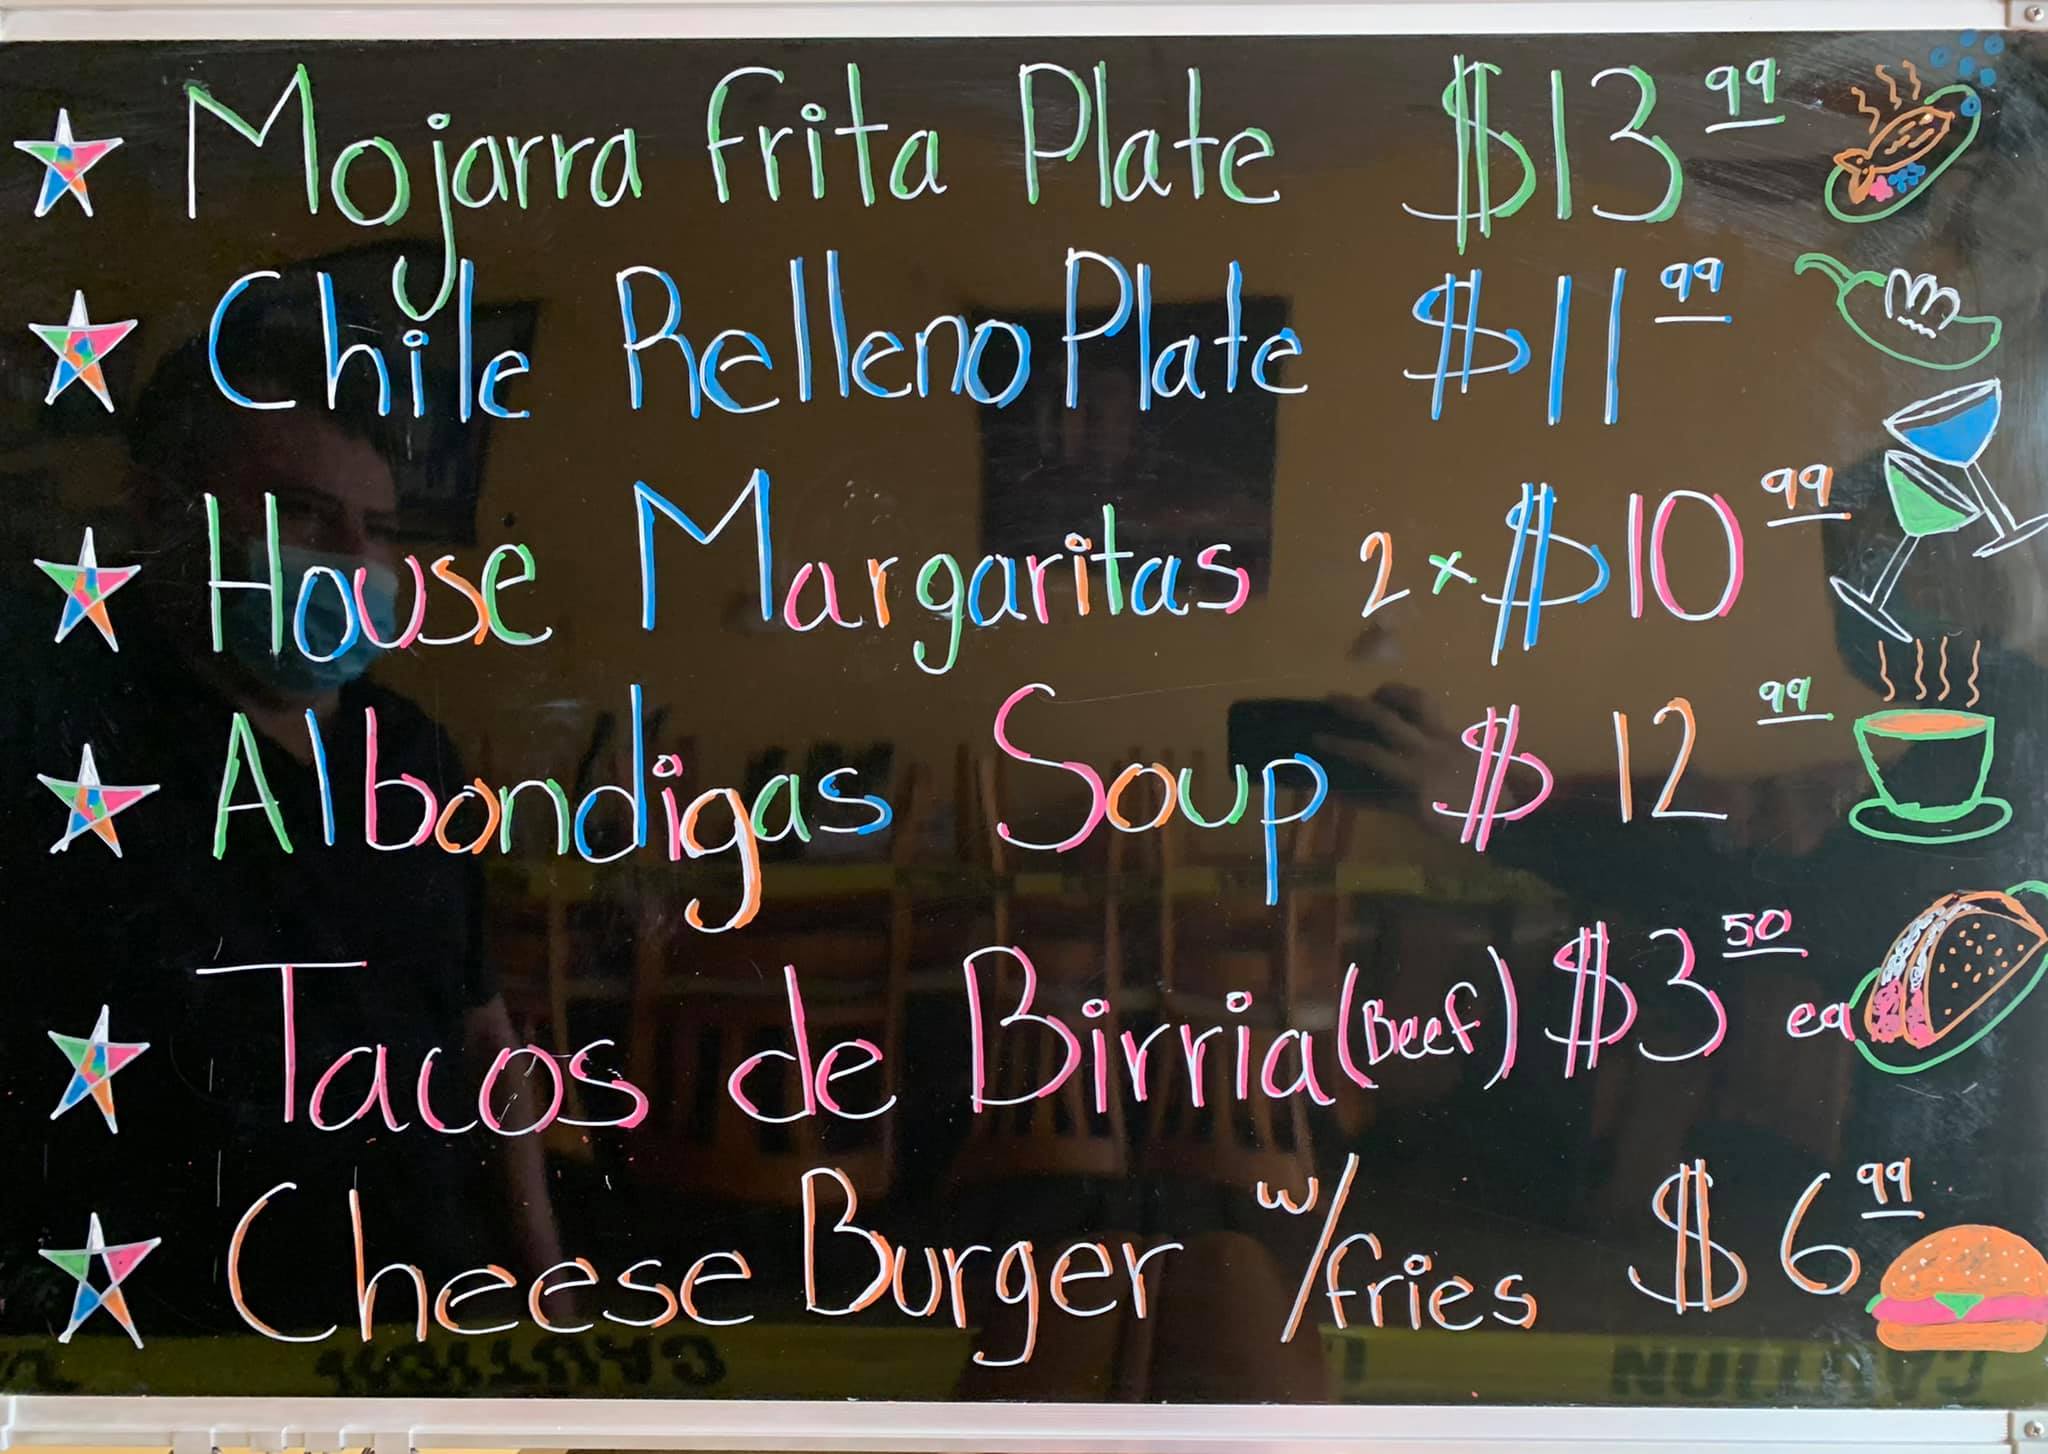 Mojarra frita Plate $13 99
Chile Relleno Plate $11 99
House Margaritas 2 x $10 99
Albondigas Soup $12 99
Tacos de Birria (Beef) $3 50 ea
Cheese Burger w/fries $6 99
CAUTION CAUTION